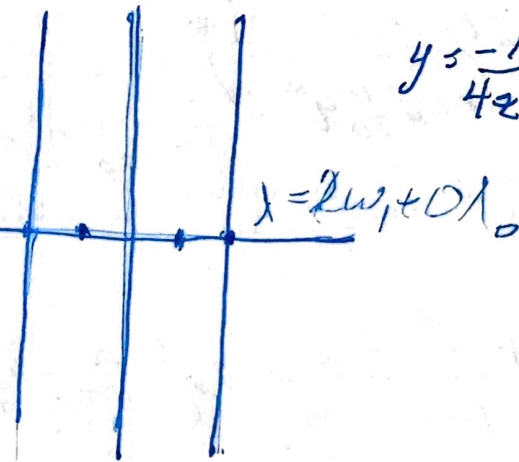 y = -1/4x
λ = 2ω₁ + 0Λ₀